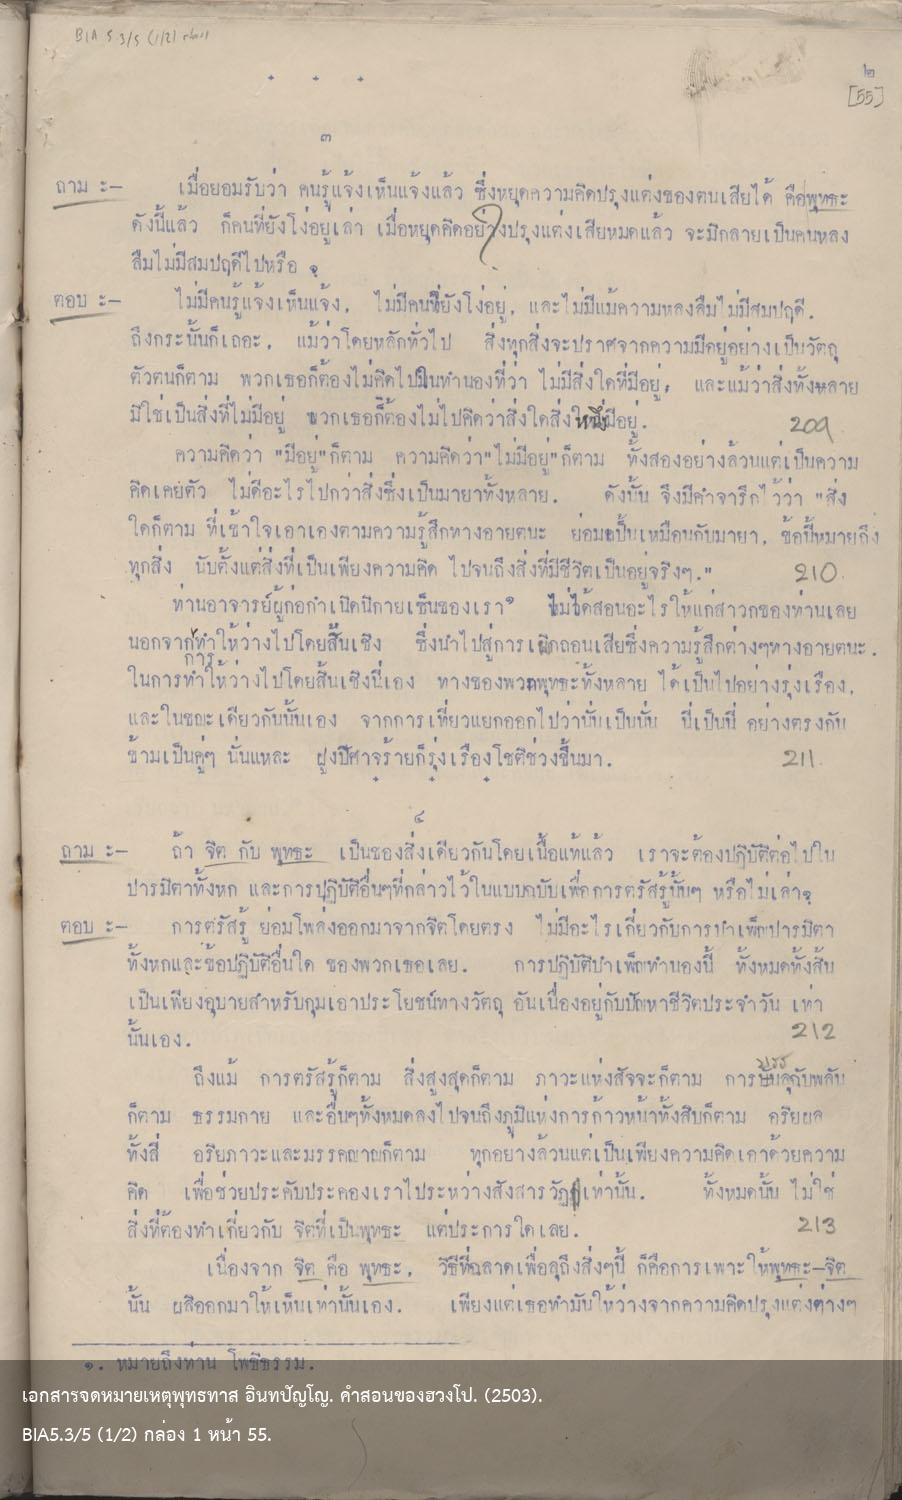 BIA 5.3/5 (1/2) กล่อง 1
๒
[55]
๓
ถาม ะ— เมื่อยอมรับว่า คนรู้แจ้งเห็นแจ้งแล้ว ซึ่งหยุดความคิดปรุงแต่งของตนเสียได้ คือพุทธะ
ดังนี้แล้ว ก็คนที่ยังโง่อยู่เล่า เมื่อหยุดคิดอย่างปรุงแต่งเสียหมดแล้ว จะมิกลายเป็นคนหลง
ลืมไม่มีสมปฤดีไปหรือ ?
ตอบ ะ— ไม่มีคนรู้แจ้งเห็นแจ้ง, ไม่มีคนที่ยังโง่อยู่, และไม่มีแม้ความหลงลืมไม่มีสมปฤดี.
ถึงกระนั้นก็เถอะ, แม้ว่าโดยหลักทั่วไป สิ่งทุกสิ่งจะปราศจากความมีอยู่อย่างเป็นวัตถุ
ตัวตนก็ตาม พวกเธอก็ต้องไม่คิดไปในทำนองที่ว่า ไม่มีสิ่งใดที่มีอยู่, และแม้ว่าสิ่งทั้งหลาย
มิใช่เป็นสิ่งที่ไม่มีอยู่ พวกเธอก็ต้องไม่ไปคิดว่าสิ่งใดสิ่งหนึ่งมีอยู่. 209
ความคิดว่า "มีอยู่"ก็ตาม ความคิดว่า"ไม่มีอยู่"ก็ตาม ทั้งสองอย่างล้วนแต่เป็นความ
คิดเคยตัว ไม่ดีอะไรไปกว่าสิ่งซึ่งเป็นมายาทั้งหลาย. ดังนั้น จึงมีคำจารึกไว้ว่า "สิ่ง
ใดก็ตาม ที่เข้าใจเอาเองตามความรู้สึกทางอายตนะ ย่อมเป็นเหมือนกับมายา, ข้อนี้หมายถึง
ทุกสิ่ง นับตั้งแต่สิ่งที่เป็นเพียงความคิด ไปจนถึงสิ่งที่มีชีวิตเป็นอยู่จริงๆ." 210
ท่านอาจารย์ผู้ก่อกำเนิดนิกายเซ็นของเรา๑ ไม่ได้สอนอะไรให้แก่สาวกของท่านเลย
นอกจากการทำให้ว่างไปโดยสิ้นเชิง ซึ่งนำไปสู่การเพิกถอนเสียซึ่งความรู้สึกต่างๆทางอายตนะ.
ในการทำให้ว่างไปโดยสิ้นเชิงนี่เอง ทางของพวกพุทธะทั้งหลาย ได้เป็นไปอย่างรุ่งเรือง,
และในขณะเดียวกันนั้นเอง จากการเที่ยวแยกออกไปว่านั่นเป็นนั่น นี่เป็นนี่ อย่างตรงกัน
ข้ามเป็นคู่ๆ นั่นแหละ ฝูงปีศาจร้ายก็รุ่งเรืองโชติช่วงขึ้นมา. 211
๔
ถาม ะ— ถ้า จิต กับ พุทธะ เป็นของสิ่งเดียวกันโดยเนื้อแท้แล้ว เราจะต้องปฏิบัติต่อไปใน
ปารมิตาทั้งหก และการปฏิบัติอื่นๆที่กล่าวไว้ในแบบฉบับเพื่อการตรัสรู้นั้นๆ หรือไม่เล่า?
ตอบ ะ— การตรัสรู้ ย่อมโพล่งออกมาจากจิตโดยตรง ไม่มีอะไรเกี่ยวกับการบำเพ็ญปารมิตา
ทั้งหกและข้อปฏิบัติอื่นใด ของพวกเธอเลย. การปฏิบัติบำเพ็ญทำนองนี้ ทั้งหมดทั้งสิ้น
เป็นเพียงอุบายสำหรับกุมเอาประโยชน์ทางวัตถุ อันเนื่องอยู่กับปัญหาชีวิตประจำวัน เท่า
นั้นเอง. 212
ถึงแม้ การตรัสรู้ก็ตาม สิ่งสูงสุดก็ตาม ภาวะแห่งสัจจะก็ตาม การบรรลุฉับพลัน
ก็ตาม ธรรมกาย และอื่นๆทั้งหมดลงไปจนถึงภูมิแห่งการก้าวหน้าทั้งสิบก็ตาม อริยผล
ทั้งสี่ อริยภาวะและมรรคญาณก็ตาม ทุกอย่างล้วนแต่เป็นเพียงความคิดเดาด้วยความ
คิด เพื่อช่วยประคับประคองเราไประหว่างสังสารวัฏฏ์เท่านั้น. ทั้งหมดนั้น ไม่ใช่
สิ่งที่ต้องทำเกี่ยวกับ จิตที่เป็นพุทธะ แต่ประการใดเลย. 213
เนื่องจาก จิต คือ พุทธะ, วิธีที่ฉลาดเพื่อลุถึงสิ่งๆนี้ ก็คือการเพาะให้พุทธะ—จิต
นั้น ผลิออกมาให้เห็นเท่านั้นเอง. เพียงแต่เธอทำมันให้ว่างจากความคิดปรุงแต่งต่างๆ
๑. หมายถึงท่าน โพธิธรรม.
เอกสารจดหมายเหตุพุทธทาส อินทปัญโญ. คำสอนของฮวงโป. (2503).
BIA5.3/5 (1/2) กล่อง 1 หน้า 55.